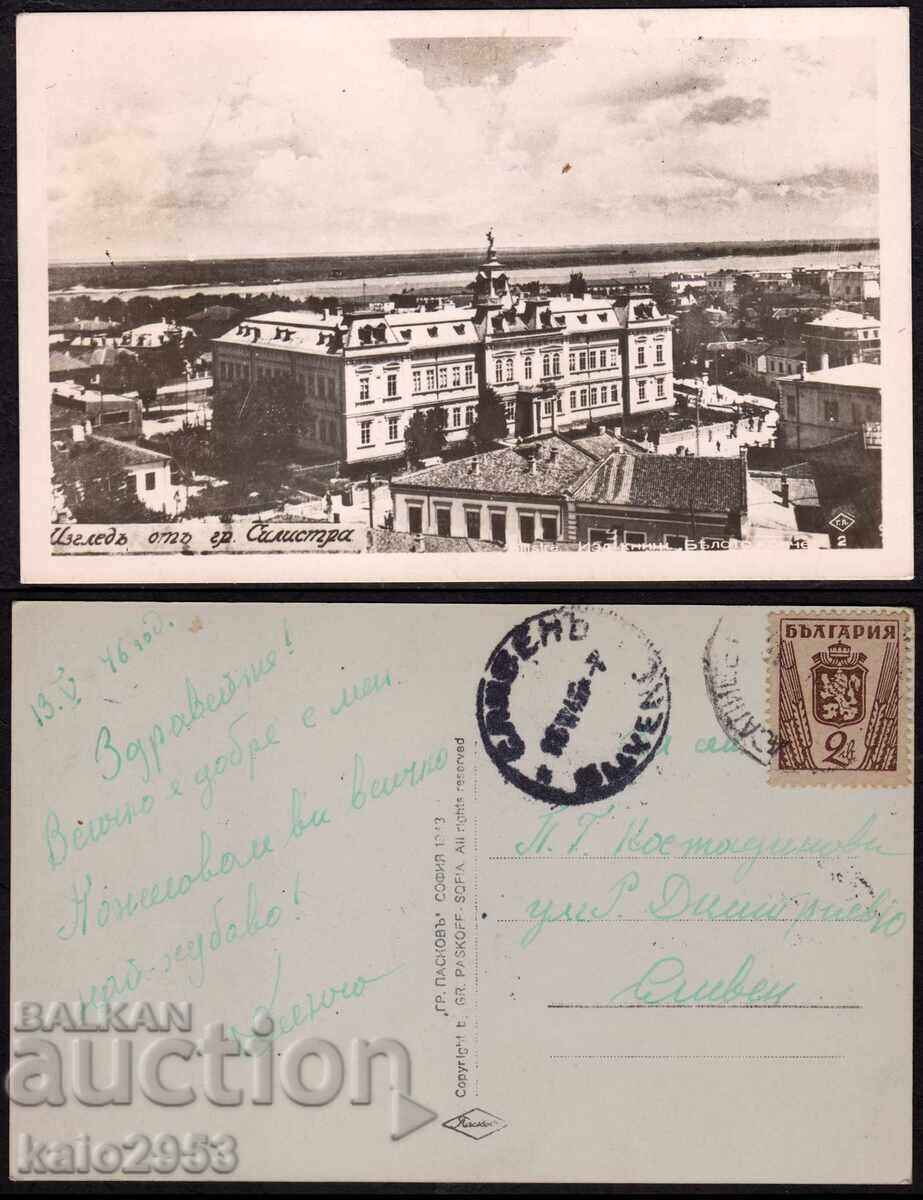 Изгледъ отъ гр. Силистра
Г.П.
2
13.V. 46 год.
Здравейте!
Всичко е добре с мен.
Пожелавам ви всичко
най-хубаво!
"ГР. ПАСКОВЪ" СОФИЯ 1943
Copyright b. GR. PASKOFF - SOFIA. All rights reserved
Пасковъ
СЛИВЕНЪ
SLIVEN
БЪЛГАРИЯ
2 лв
П. Г. Костадинови
ул Р. Димитриев 10
Сливен
BALKAN
auction
kaio2953